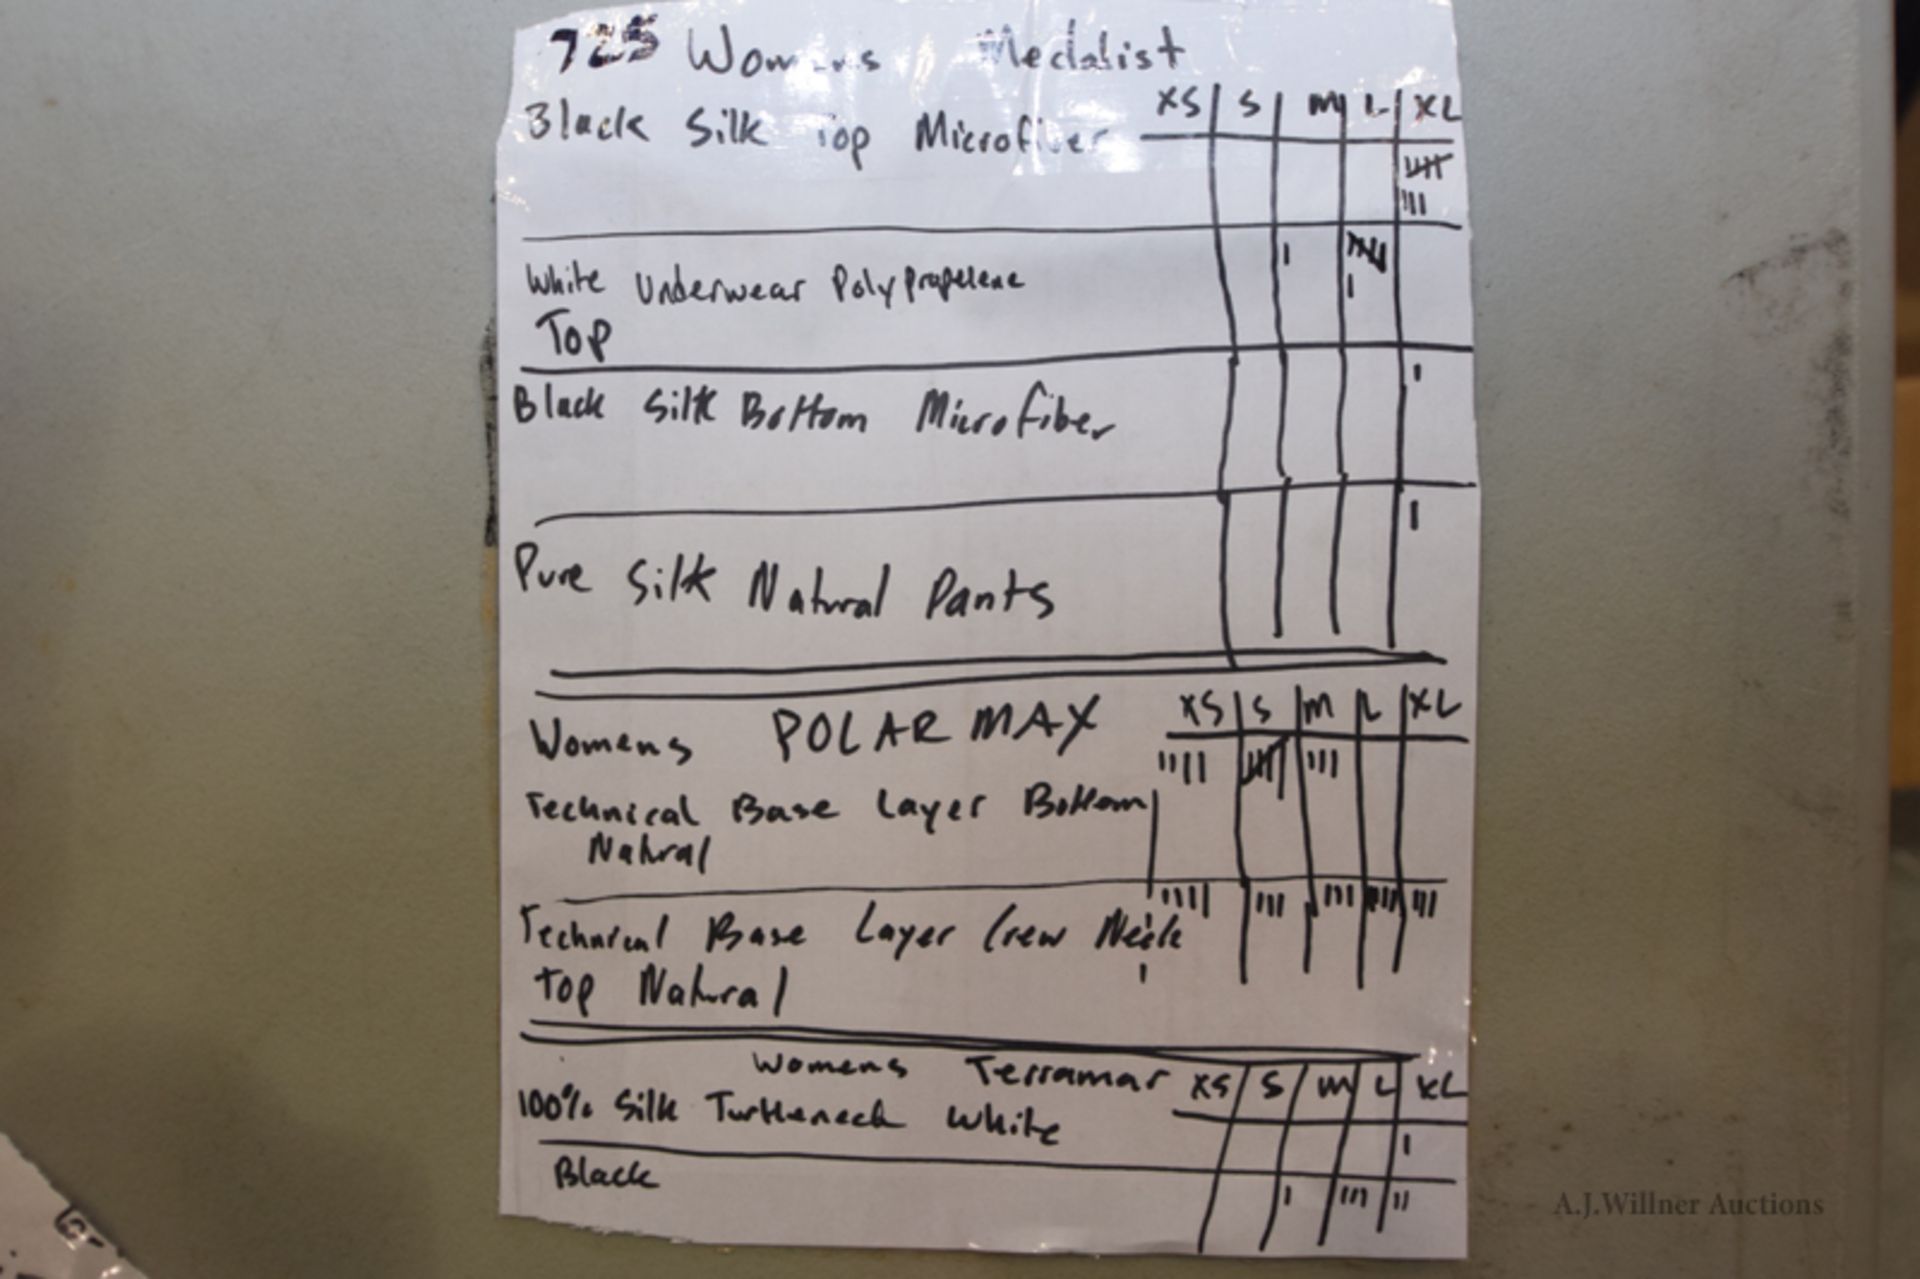 725 Womens Medalist
XS S M L XL
Black Silk Top Microfiber
White Underwear Polypropelene
Top
Black Silk Bottom Microfiber
Pure Silk Natural Pants
Womens POLARMAX XS S M L XL
Technical Base Layer Bottom
Natural
Technical Base Layer Crew Neck
Top Natural
Womens Terramar XS S M L XL
100% Silk Turtleneck White
Black
A.J.Willner Auctions